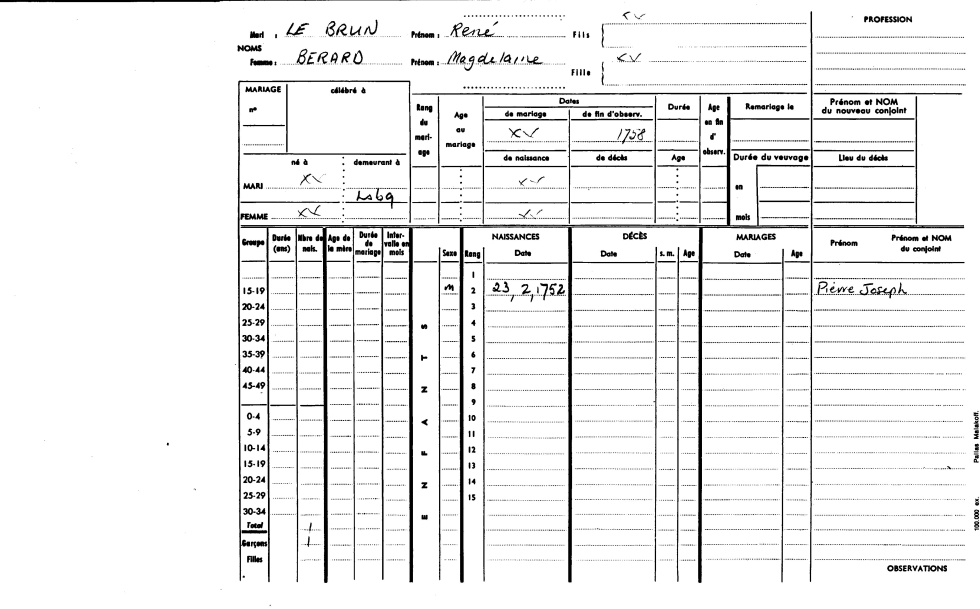 Mari : LE BRUN Prénom : René Fils XV PROFESSION
NOMS
Femme : BERARD Prénom : Magdelaine Fille XV
MARIAGE célébré à Rang du mariage Age au mariage Dates Durée Age en fin d'observ. Remariage le Prénom et NOM du nouveau conjoint
n° de mariage de fin d'observ.
XV 1758
né à demeurant à de naissance de décès Age Durée du veuvage Lieu du décès
MARI XV XV en
Lsbg
FEMME XV XV mois
Groupe Durée (ans) Nbre de nais. Age de la mère Durée de mariage Intervalle en mois Sexe Rang NAISSANCES Date DÉCÈS Date s. m. Age MARIAGES Date Age Prénom Prénom et NOM du conjoint
1
15-19 m 2 23, 2, 1752 Pierre Joseph
20-24 3
25-29 4
30-34 5
35-39 6
40-44 7
45-49 8
9
0-4 10
5-9 11
10-14 12
15-19 13
20-24 14
25-29 15
30-34
ENFANTS
Total 1
Garçons 1
Filles
OBSERVATIONS
100.000 ex. Pairies Malakoff.